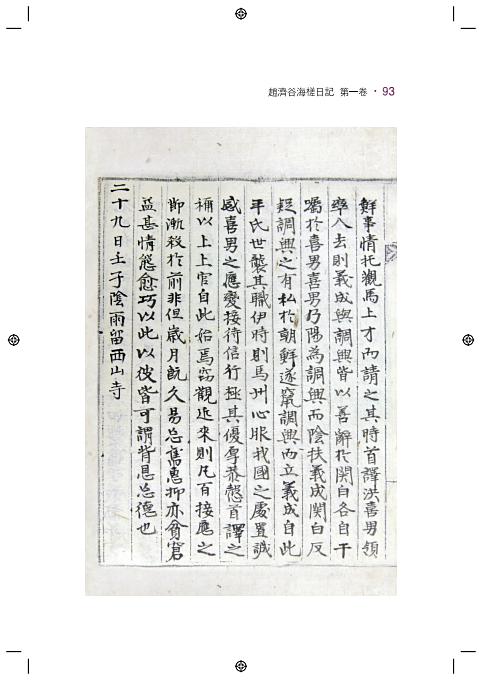 趙濟谷海槎日記 第一卷 · 93
鮮事情托觀馬上才而請之其時首譯洪喜男領
率入去則義成與調興皆以善辭於関白各自干
囑於喜男喜男乃陽為調興而陰扶義成関白反
疑調興之有私於朝鮮遂竄調興而立義成自此
平氏世襲其職伊時則馬州心服我國之處置誠
感喜男之應變接待信行極其優厚恭慤首譯之
稱以上上官自此始焉窃觀近来則凡百接應之
節漸殺於前非但歲月既久易忘舊恵抑亦貪窘
益甚情態愈巧以此以彼皆可謂背恩忘德也
二十九日壬子陰雨留西山寺